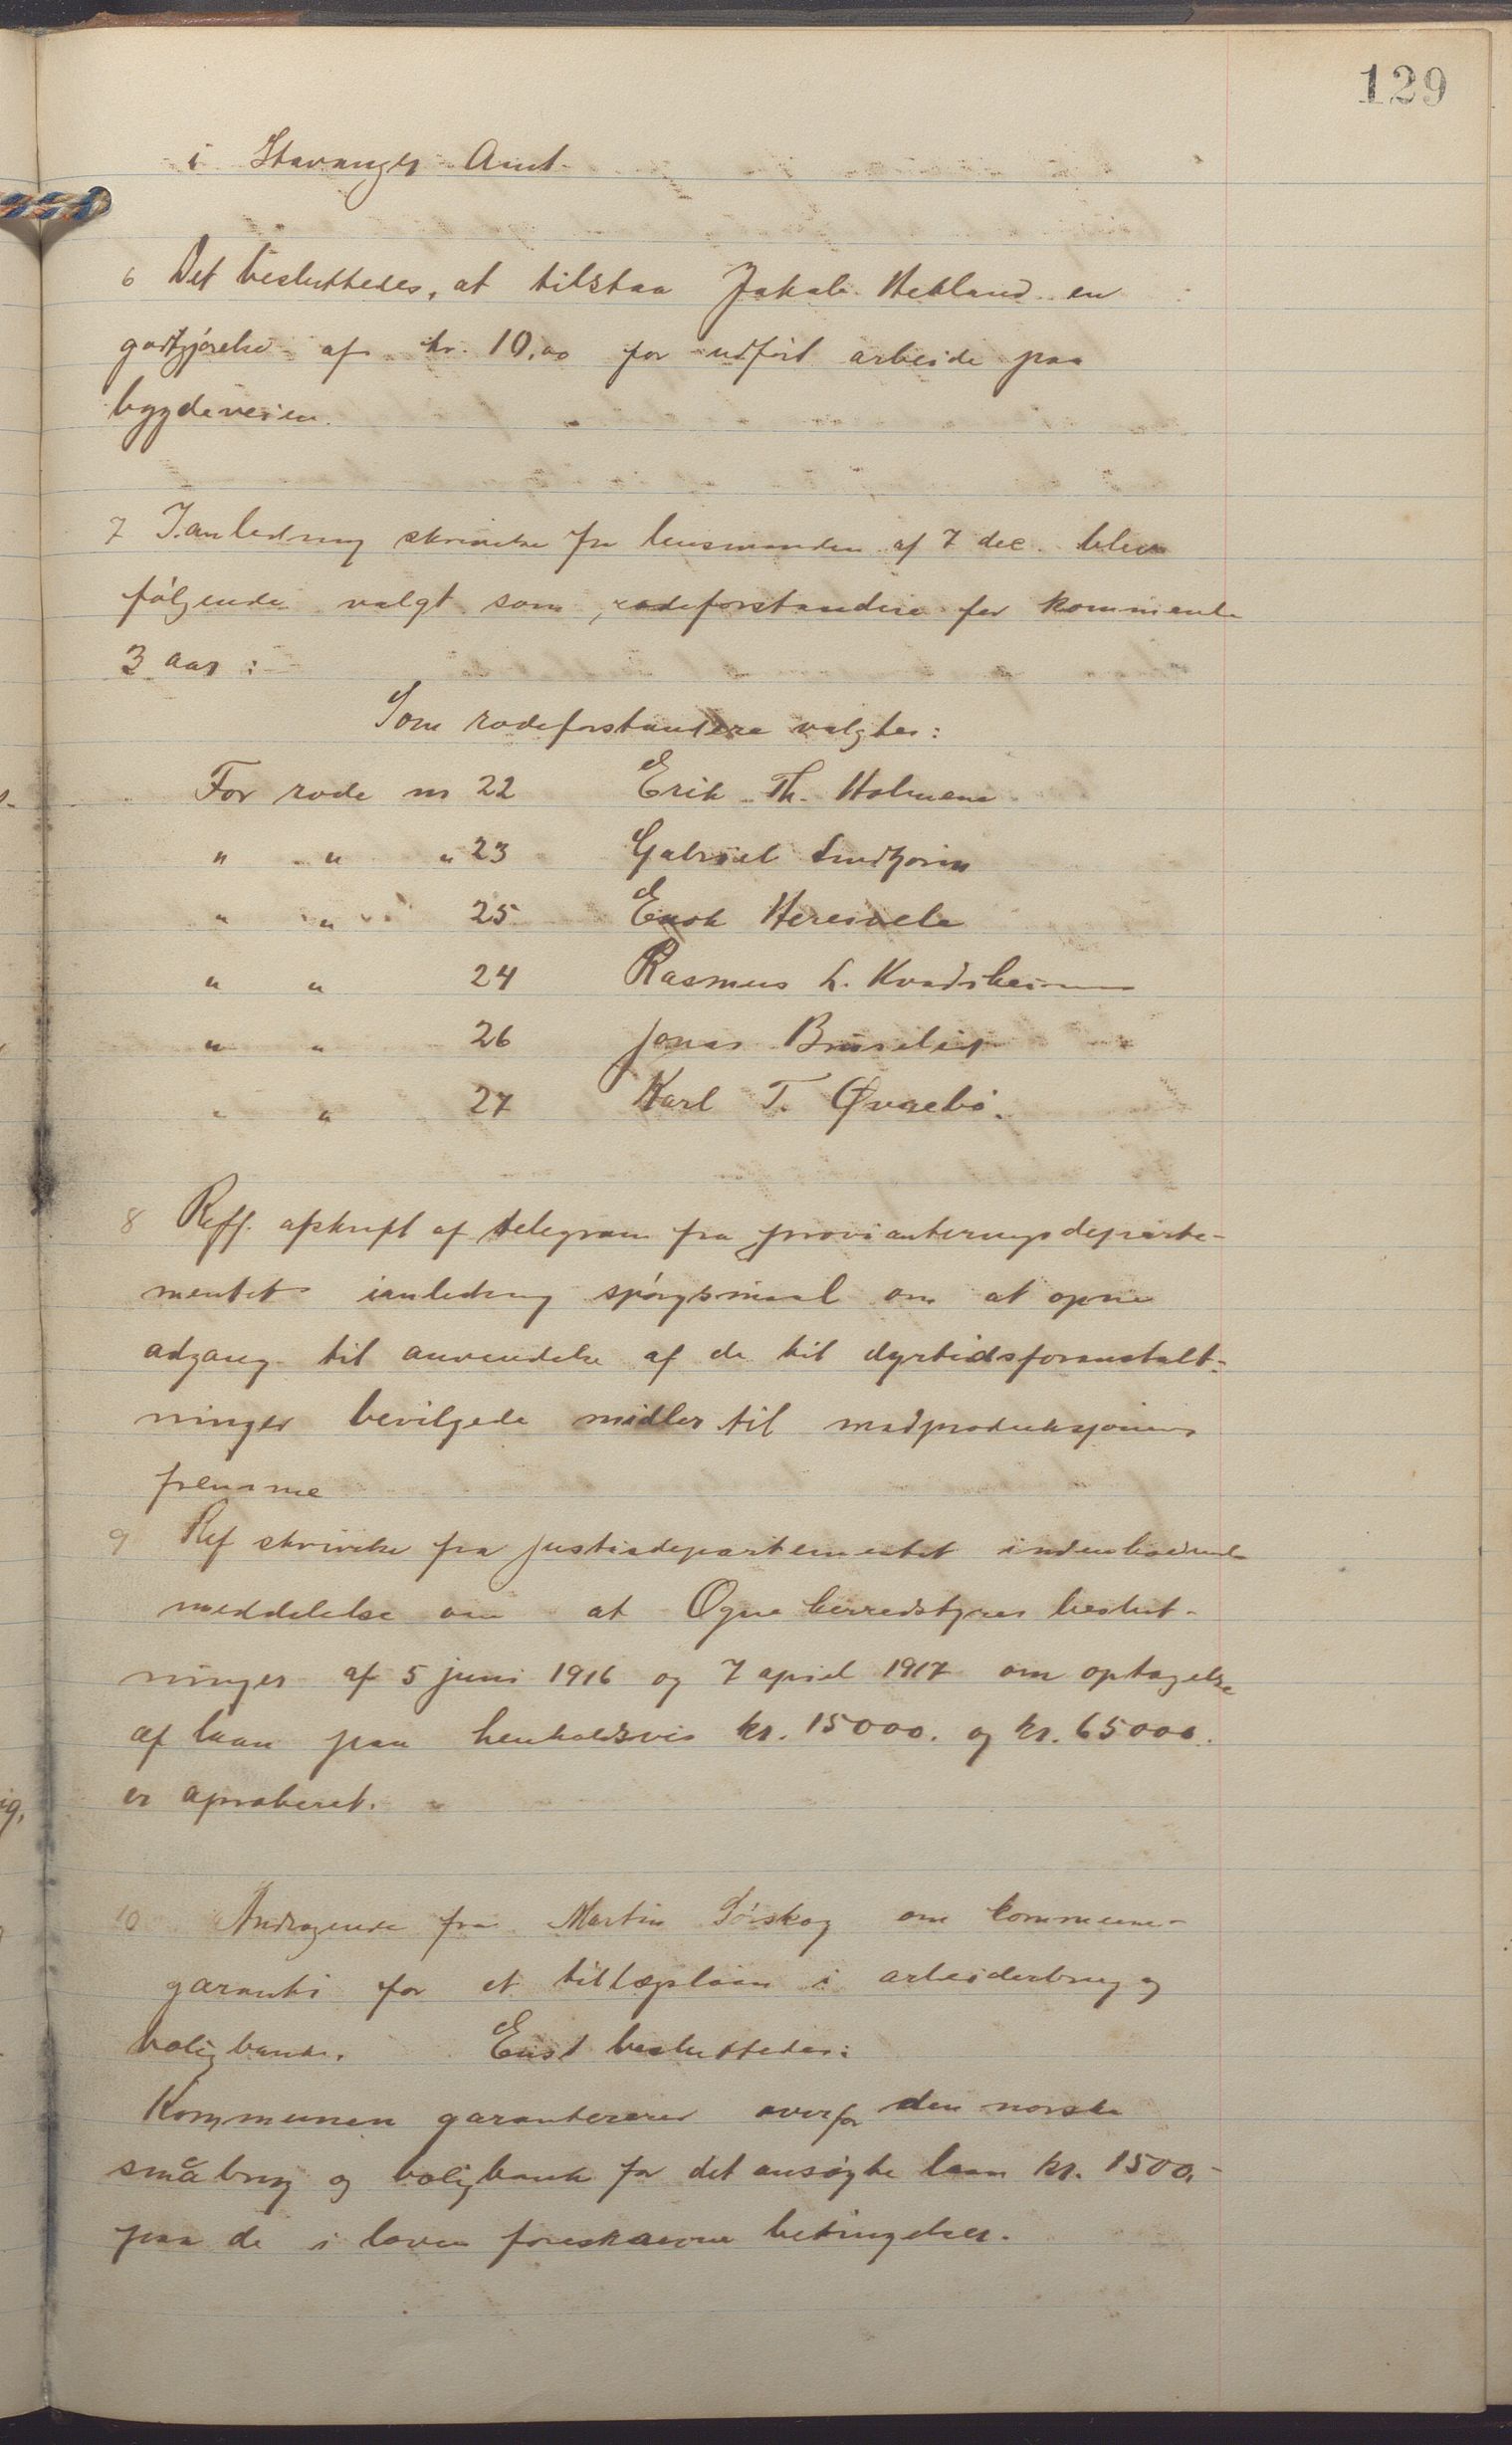 129
i Stavanger Amt
6 Det besluttedes, at tilstaa Jakob Hetland en
godtgjørelse af kr. 10,00 for udført arbeide paa
bygdeveien.
7 I anledning skrivelse fra lensmanden af 7 dec. blev
følgende valgt som rodeforstandere for kommende
3 aar:
Som rodeforstandere valgtes:
For rode nr 22 Erik Th. Holmane
" " " 23 Gabriel
" " 25 Enok Heresvela
" " 24 Rasmus L. Kvadsheim
" " 26 Jonas Bruselid
" " 27 Karl T. Øvrebø.
8 Reff. afskrift af telegram fra provianteringsdeparte-
mentet ianledning spørgsmaal om at opne
adgang til anvendelse af de til dyrtidsforanstalt-
ninger bevilgede midler til madproduksjonens
fremme
9 Ref skrivelse fra justisdepartementet indeholdende
meddelelse om at Ogne herredstyres beslut-
ninger af 5 juni 1916 og 7 april 1917 om optagelse
af laan paa henholdsvis kr. 15000. og kr. 65000.
er aproberet.
10 Andragende fra Martin Sørskog om kommune-
garanti for et tillægslaan i arbeiderbrug og
boligbank. Enst besluttedes:
Kommunen garanterer overfor den norske
småbrug og boligbank for det ansøgte laan kr. 1500,-
paa de i loven foreskrevne betingelser.